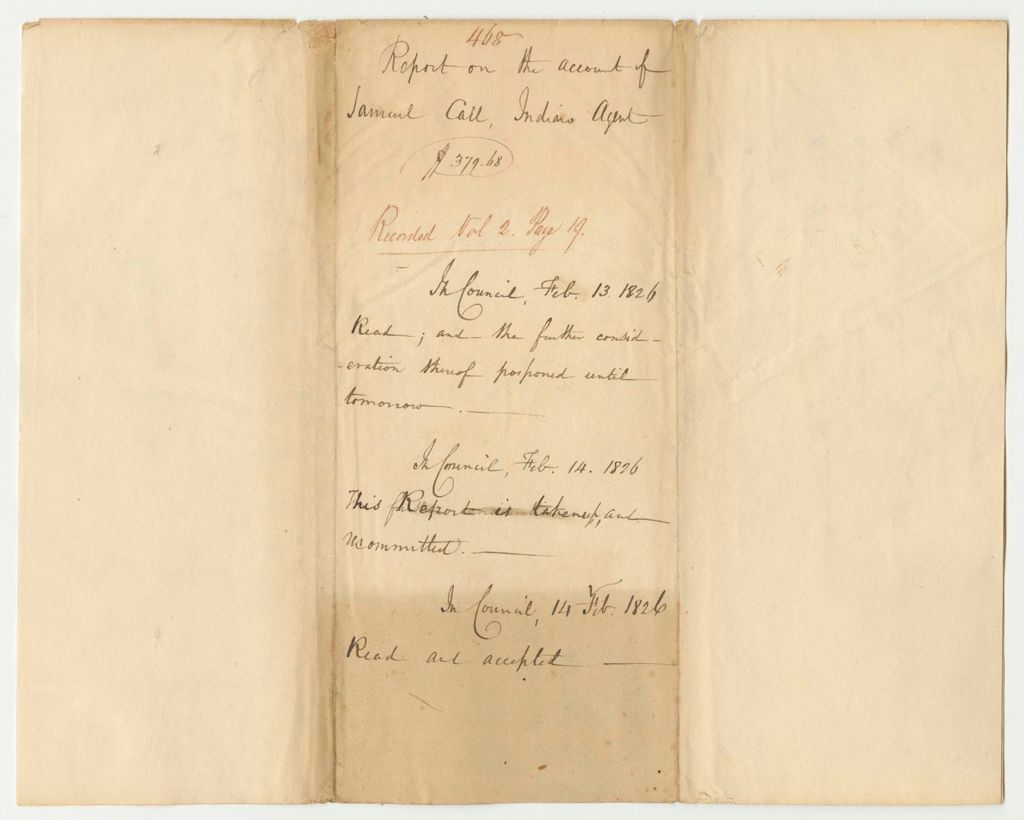 468
Report on the account of
Samuel Call, Indian Agent
$379.68
Recorded Vol 2. Page 19.
In Council, Feb. 13. 1826
Read; and the further consid-
-eration thereof posponed until
tomorrow.
In Council, Feb. 14. 1826
This Report is taken up, and
recommitted.
In Council, 14 Feb. 1826
Read and accepted